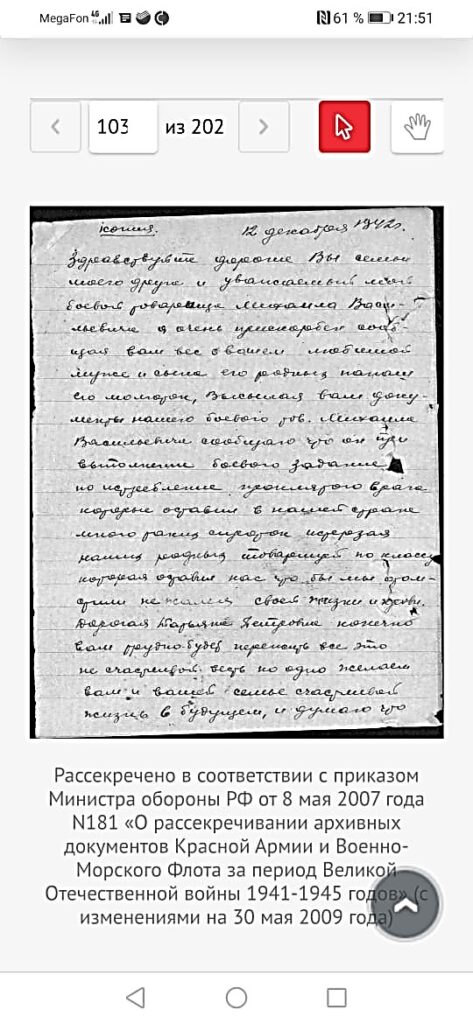 MegaFon 4G 61 % 21:51
103 из 202
копия. 12 декабря 1942г.
Здравствуйте дорогие Вы семьи
моего друга и уважаемый мой
боевой товарища Михаила Васи-
льевича я очень прискорбен сооб-
щая вам вес о вашем любимом
мужа и сына его родных папаши
его мамаши, Высылая вам доку-
менты нашего боевого тов. Михаила
Васильевича сообщаю что он при
выполнение боевого задание
по истребление проклятого врага
которые оставил в нашей стране
много сироток
наших родных товарищей по классу
которая оставил нас что бы мы отом-
стили не жалея своей жизни и крови.
Дорогая Петровне конечно
вам трудно будет переносить все это
не счастливой весть но одно желаем
вам и вашей семье счастливой
жизнь в будущем, и думаю что
Рассекречено в соответствии с приказом
Министра обороны РФ от 8 мая 2007 года
N181 «О рассекречивании архивных
документов Красной Армии и Военно-
Морского Флота за период Великой
Отечественной войны 1941-1945 годов» (с
изменениями на 30 мая 2009 года)